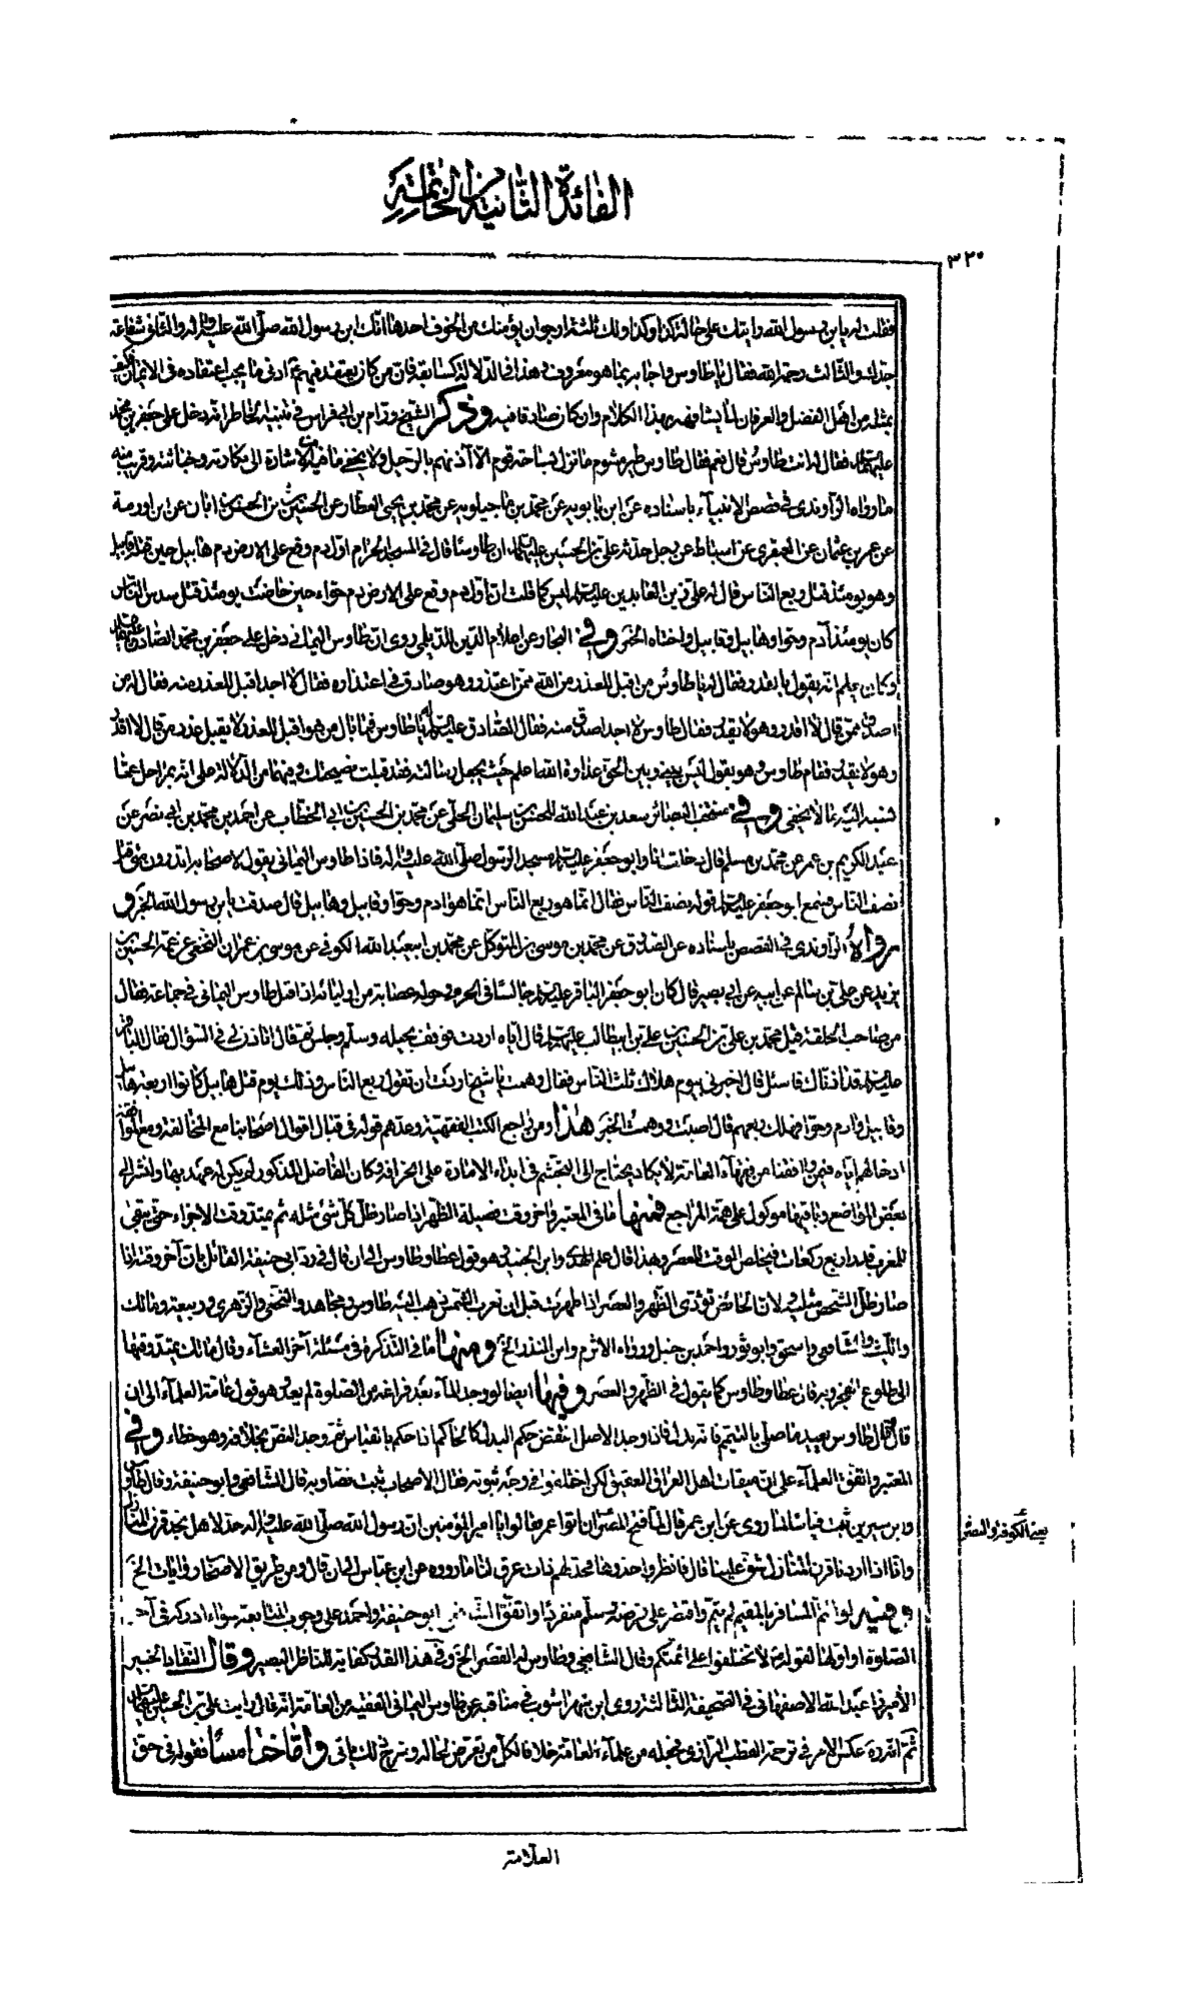 الفائدة الثانية من الخاتمة
٣٢٠
فقلت له يا بن رسول الله رايتك على حالة كذا وكذا ولك ثلثة ارجو ان يؤمنك من الخوف احدها انك ابن رسول الله صلى الله عليه واله والثاني شفاعة
جدك والثالث رحمة الله فقال يا طاوس واجابه بما هو معروف وهذا في الدلالة كسابقه فان من كان يعتقد فيهم ادنى ما يجب اعتقاده في الائمة فكيف
بمثله من اهل الفضل والعرفان لما يشافهه بهذا الكلام وان كان صادقا فيه وذكر الشيخ ورام بن ابي فراس في تنبيه الخاطر انه دخل على جعفر بن محمد
عليهما السلام فقال له انت طاوس قال نعم فقال طاوس طير مشوم ما نزل بساحة قوم الا آذنهم بالرحيل ولا يخفى ما فيه من الاشارة الى نكارته وخباثته وقريب منه
ما رواه الراوندي في قصص الانبياء باسناده عن ابن بابويه عن محمد بن ماجيلويه عن محمد بن يحيى العطار عن الحسين بن الحسن بن ابان عن ابن اورمة
عن عمر بن عثمان عن العبقري عن اسباط عن رجل حدثه علي بن الحسين عليهما السلام ان طاوسا قال في المسجد الحرام اول دم وقع على الارض دم هابيل حين قتله قابيل
وهو يومئذ قتل ربع الناس قال له علي زين العابدين عليه السلام ليس كما قلت ان اول دم وقع على الارض دم حواء حين حاضت يومئذ قتل سدس الناس
كان يومئذ آدم وحوا وهابيل وقابيل واختاه الخبر وفي البحار عن اعلام الدين للديلمي روى ان طاوس اليماني دخل على جعفر بن محمد الصادق عليهما السلام
وكان يعلم انه يقول بالقدر فقال له يا طاوس من اقبل للعذر من الله ممن اعتذر وهو صادق في اعتذاره فقال لا احد اقبل للعذر منه فقال له من
اصدق ممن قال لا اقدر وهو لا يقدر فقال طاوس لا احد اصدق منه فقال الصادق عليه السلام يا طاوس فما بال من هو اقبل للعذر لا يقبل عذر من قال لا اقدر
وهو لا يقدر فقام طاوس وهو يقول ليس بيني وبين الحق عداوة الله اعلم حيث يجعل رسالته فقد قبلت نصيحتك وفيهما من الدلالة على انه بمراحل عما
نسبه اليه ما لا يخفى وفي منتخب البصائر سعد بن عبد الله للحسن بن سليمان الحلي عن محمد بن الحسين بن ابي الخطاب عن احمد بن محمد بن ابي نصر عن
عبد الكريم بن عمر عن محمد بن مسلم قال دخلت انا وابو جعفر عليه السلام مسجد الرسول صلى الله عليه واله فاذا طاوس اليماني يقول لاصحابه اتدرون متى قتل
نصف الناس فسمع ابو جعفر عليه السلام قوله نصف الناس فقال انما هو ربع الناس انما هو ادم وحوا وقابيل وهابيل قال صدقت يا بن رسول الله الخبر و
رواه الراوندي في القصص باسناده عن الصدوق عن محمد بن موسى بن المتوكل عن محمد بن ابي عبد الله الكوفي عن موسى بن عمران النخعي عن عمه الحسين بن
يزيد عن علي بن سالم عن ابيه عن ابي بصير قال كان ابو جعفر الباقر عليه السلام جالسا في الحرم وحوله عصابة من اوليائه اذ اقبل طاوس اليماني في جماعة فقال
من صاحب الحلقة قيل محمد بن علي بن الحسين بن علي بن ابيطالب عليهم السلام قال اياه اردت فوقف بحياله وسلم وجلس ثم قال اتاذن لي في السؤال فقال الباقر
عليه السلام قد اذناك فاسئل قال اخبرني بيوم هلاك ثلث الناس فقال وهمت يا شيخ اردت ان تقول ربع الناس وذلك يوم قتل هابيل كانوا اربعة هابيل
وقابيل وادم وحوا فهلك ربعهم قال اصبت ووهمت الخبر هذا ومن راجع الكتب الفقهية وعدهم قوله في قبال اقوال اصحابنا مع المخالفة ومع الموافقة
ادخالهم اياه فيمن وافقنا من فقهاء العامة لا يكاد يحتاج الى التجشم في ابداء الامارة على انحرافه وكان الفاضل المذكور لم يكن له عهد بها ولنشر الى
بعض المواضع وباقيها موكول على همة المراجع فمنها ما في المعتبر واخر وقت فضيلة الظهر اذا صار ظل كل شئ مثله ثم يمتد وقت الاجزاء حتى يبقى
للمغرب قدر اربع ركعات فيخلص الوقت للعصر وبهذا قال علم الهدى وابن الجنيد وهو قول عطا وطاوس الى ان قال في رد ابي حنيفة القائل بان آخر وقته اذا
صار ظل الشخص مثليه ولان الحائض تؤدي الظهر والعصر اذا طهرت قبل ان تغرب الشمس ذهب اليه طاوس ومجاهد والنخعي والزهري وربيعة ومالك
والليث والشافعي واسحق وابو ثور واحمد بن حنبل ورواه الاثرم وابن المنذر الخ ومنها ما في التذكرة في مسئلة آخر العشاء وقال مالك يمتد وقتها
الى طلوع الفجر وبه قال عطا وطاوس كما يقول في الظهر والعصر وفيها ايضا لو وجد الماء بعد فراغه من الصلوة لم يعد وهو قول عامة العلماء الى ان
قال وقال طاوس يعيد ما صلى بالتيمم فانه بدل فاذا وجد الاصل انتقض حكم البدل كالحاكم اذا حكم بالقياس ثم وجد النص بخلافه وهو خطاء وفي
المعتبر واتفق العلماء على ان ميقات اهل العراق العقيق لكن اختلفوا في وجه ثبوته فقال الاصحاب ثبت نصا وبه قال الشافعي وابو حنيفة وقال طاوس
وابن سيرين ثبت قياسا لما روى عن ابن عمر قال لما فتح المصران اتوا عمر فقالوا يا امير المؤمنين ان رسول الله صلى الله عليه واله حد لاهل نجد قرن المنازل
وانا اذا اردنا قرن المنازل شق علينا قال فانظروا حذوها فحد لهم ذات عرق لنا ما رووه عن ابن عباس الى ان قال ومن طريق الاصحاب روايات الخ
وفيه لو ائتم المسافر بالمقيم لم يتم واقتصر على فرضه وسلم منفردا واتفق الشافعي ابو حنيفة واحمد على وجوب المتابعة سواء ادركه في آخر
الصلوة او اولها لقوله لا تختلفوا على ائمتكم وقال الشافعي وطاوس له القصر الخ وفي هذا القدر كفاية للناظر البصير وقال النقاد الخبير
الاميرزا عبد الله الاصفهاني في الصحيفة الثالثة روى ابن شهراشوب في مناقبه عن طاوس اليماني الفقيه من العامة انه قال رايت علي بن الحسين عليهما السلام
ثم انه ره عكس الامر في ترجمة القطب الرازي فجعله من علماء العامة خلافا لكل من تعرض لحاله وشرح ذلك ياتي واما خامسا فقوله في حق
يعني الكوفة والبصرة
العلامة